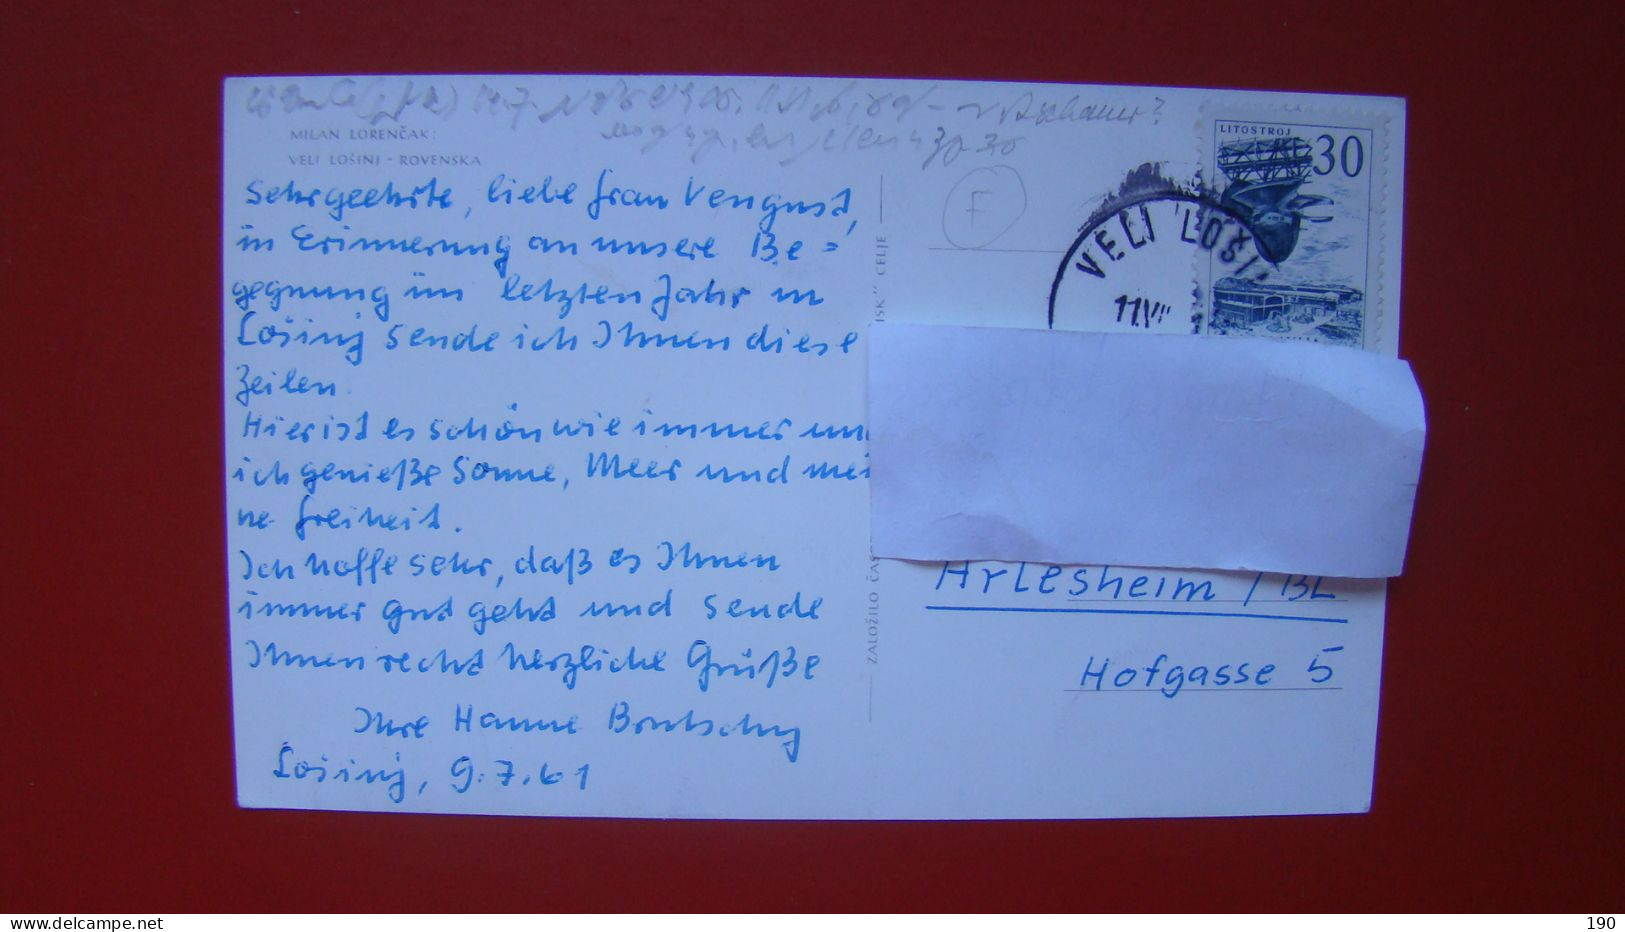 MILAN LORENČAK:
VELI LOŠINJ - ROVENSKA
Sehrgeehrte, liebe Frau Vengust,
in Erinnerung an unsere Be=
gegnung im letzten Jahr in
Lošinj sende ich Ihnen diese
Zeilen.
Hier ist es schön wie immer un
ich genieße Sonne, Meer und mei
ne Freiheit.
Ich hoffe sehr, daß es Ihnen
immer gut geht und sende
Ihnen recht herzliche Grüße
Ihre Hanne
Lošinj, 9.7.61
ZALOŽILO ČAS
ISK" CELJE
F
VELI LOŠI
11.VII
LITOSTROJ
30
Arlesheim / BL
Hofgasse 5
delcampe.net
190